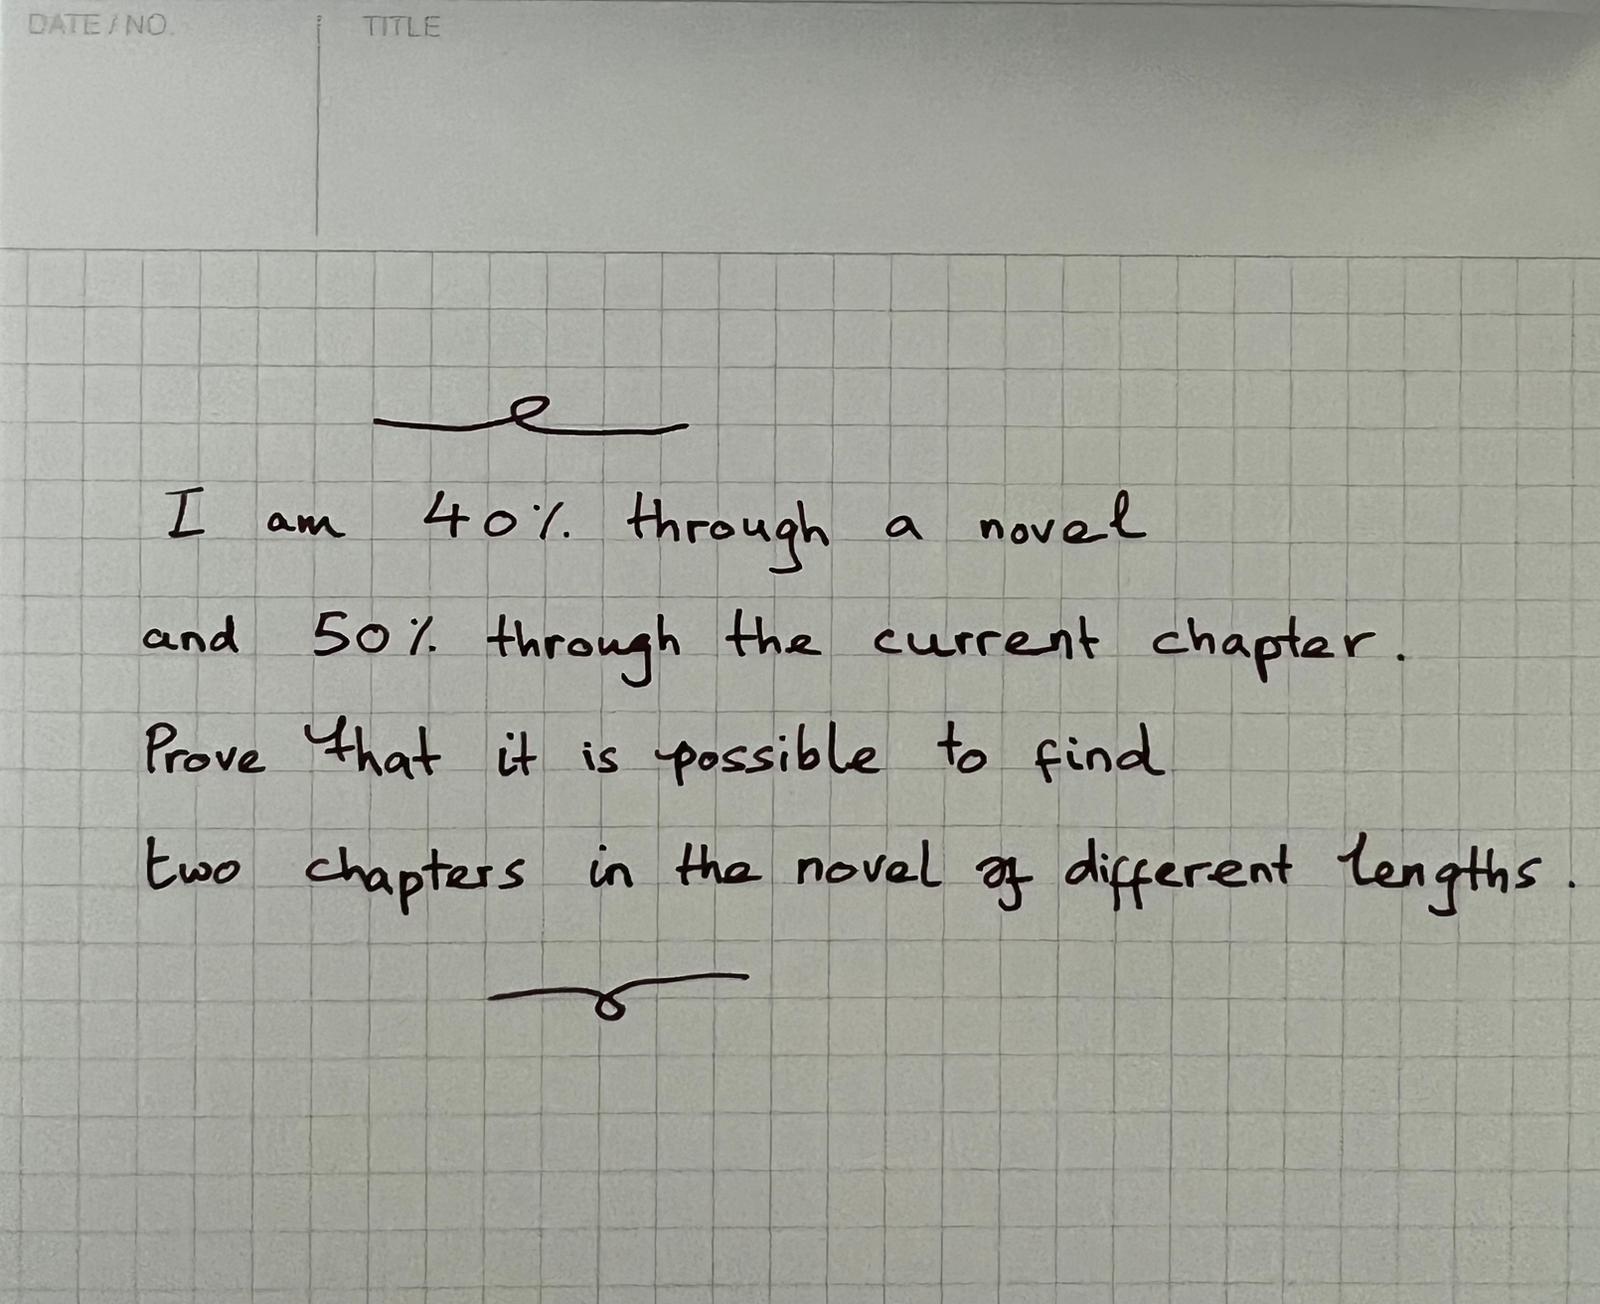 DATE / NO.
TITLE
I am 40% through a novel
and 50% through the current chapter.
Prove that it is possible to find
two chapters in the novel of different lengths.